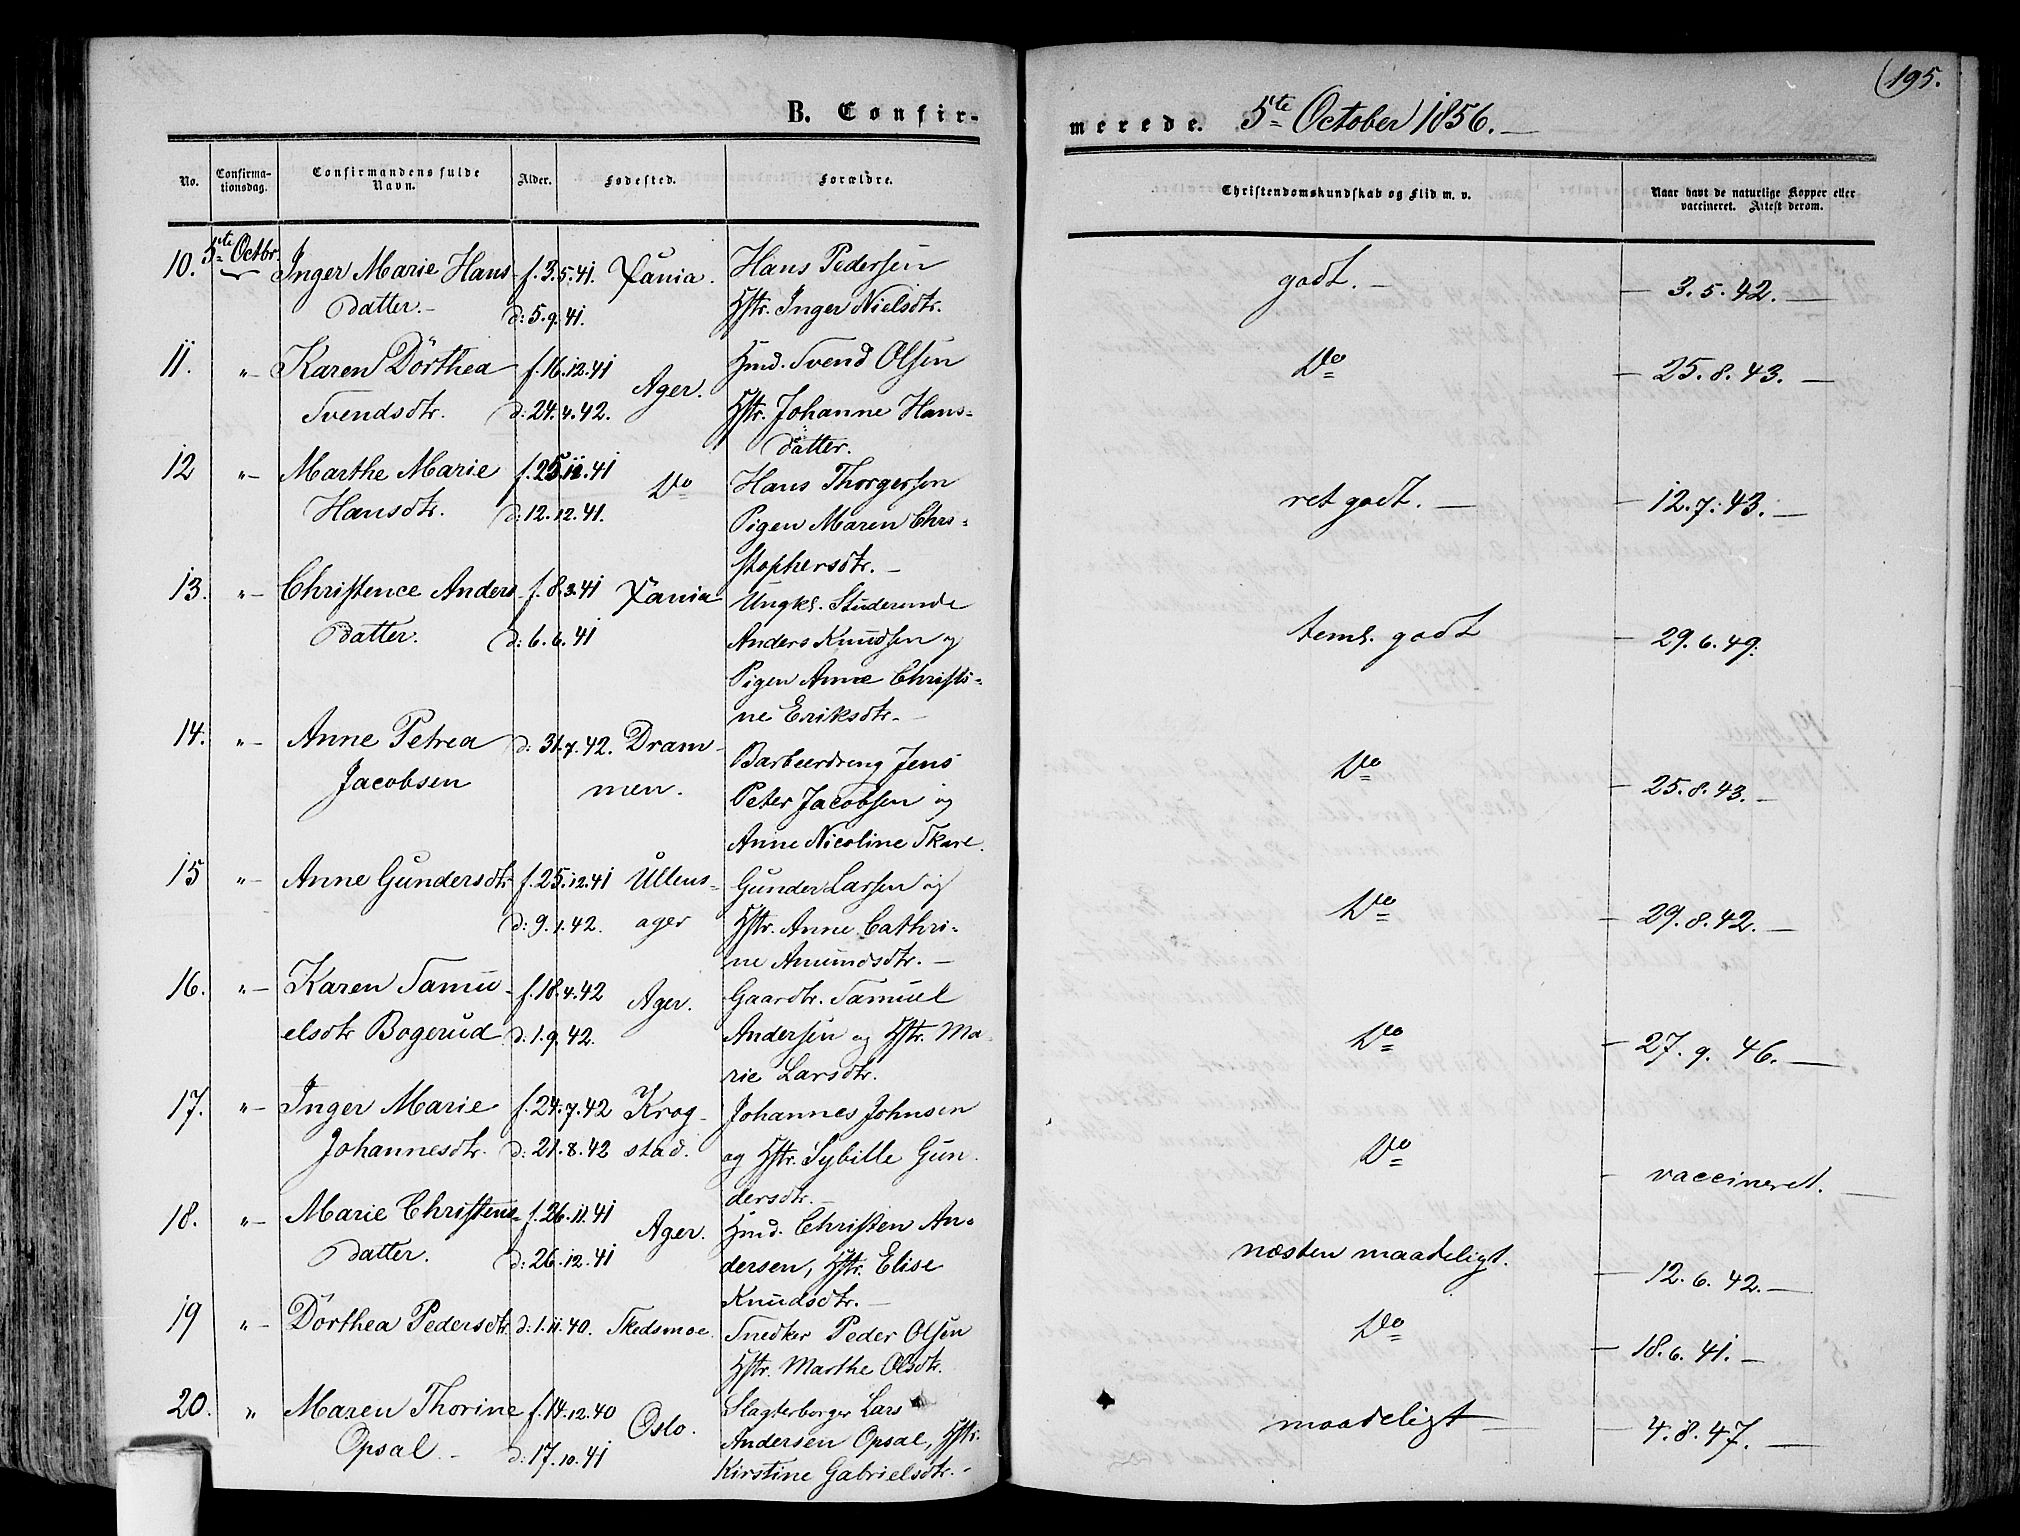 195.
B. Confirmerede. 5te October 1856.
No. Confirmationsdag. Confirmandens fulde Navn. Alder. Fødested. Forældre. Christendomskundskab og Flid m. v. Naar havt de naturlige Kopper eller vaccineret. Attest derom.
10. 5te Octbr. Inger Marie Hans- f. 3.5.41. Xania. Hans Pedersen godt. – 3.5.42. –
datter. – d: 5.9.41. Hstr. Inger Nielsdtr.
11. " – Karen Dörthea f. 16.12.41 Ager. Hmd. Svend Olsen Do – 25.8.43. –
Svendsdtr. d: 24.4.42. Hstr. Johanne Hans-
datter.
12 " – Marthe Marie f. 25.11.41 Do Hans Thorgersen ret godt. – 12.7.43. –
Hansdtr. d: 12.12.41. Pigen Maren Chri-
stophersdtr. –
13. " – Christence Anders- f. 8.3.41 Xania Ungkl. Studerende teml. godt – 29.6.49.
datter. d: 6.6.41 Anders Knudsen og
Pigen Anne Christi-
ne Eriksdtr. –
14. " – Anne Petrea d: 31.7.42. Dram- Barbeerdreng Jens Do – 25.8.43. –
Jacobsen men. Peter Jacobsen og
Anne Nicoline Skare.
15 " – Anne Gundersdtr f. 25.12.41 Ullens- Gunder Larsen og Do – 29.8.42. –
d: 9.1.42. ager Hstr. Anne Cathri-
ne Amundsdtr. –
16. " – Karen Samu- f. 18.4.42 Ager. Gaardtr. Samuel Do – 27.9.46. –
elsdtr Bogerud d: 1.9.42. Andersen og Hstr. Ma-
rie Larsdtr.
17. " – Inger Marie f. 24.7.42 Krog- Johannes Johnsen Do vaccineret. –
Johannesdtr. d: 21.8.42 stad. og Hstr. Sybille Gun-
dersdtr. –
18. " – Marie Christens- f. 26.11.41 Ager. Hmd. Christen An- næsten maadeligt. – 12.6.42. –
datter. d: 26.12.41 dersen, Hstr. Elise
Knudsdtr. –
19 " – Dörthea Pedersdtr. d: 1.11.40. Skedsmoe. Snedker Peder Olsen Do – 18.6.41. –
Hstr. Marthe Olsdtr.
20. " Maren Thorine f. 14.12.40 Oslo. Slagterborger Lars maadeligt – – 4.8.47. –
Opsal. – d: 17.10.41 Andersen Opsal, Hstr.
Kirstine Gabrielsdtr. –